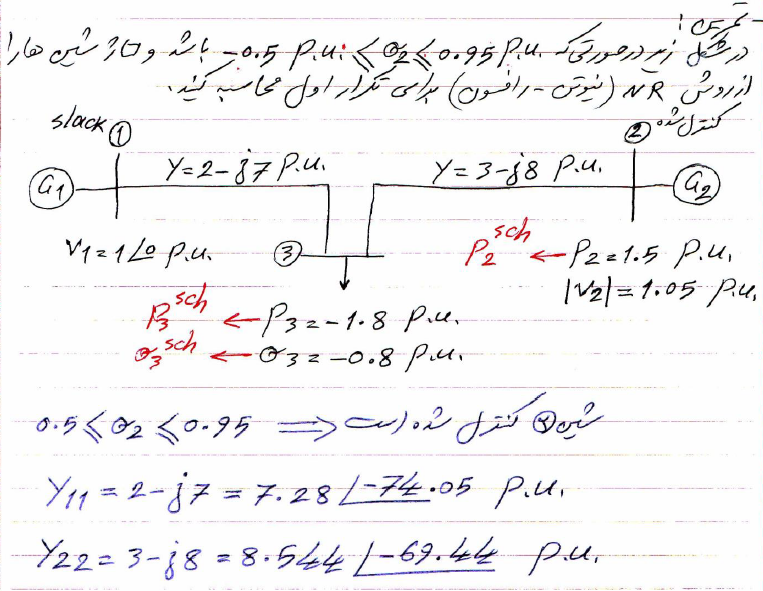 تمرین:
در شکل زیر در صورتی که -0.5 P.u. ≤ Q2 ≤ 0.95 P.u. باشد ولتاژ شین ها را
از روش NR (نیوتن - رافسون) برای تکرار اول محاسبه کنید.
slack ① ② کنترل شده
G1 Y=2-j7 P.u. Y=3-j8 P.u. G2
V1=1∠0 P.u. ③ P2^sch ← P2=1.5 P.u.
|V2|=1.05 P.u.
P3^sch ← P3=-1.8 P.u.
Q3^sch ← Q3=-0.8 P.u.
0.5 ≤ Q2 ≤ 0.95 ⟹ شین ② کنترل شده است
Y11 = 2-j7 = 7.28∠-74.05 P.u.
Y22 = 3-j8 = 8.544∠-69.44 P.u.